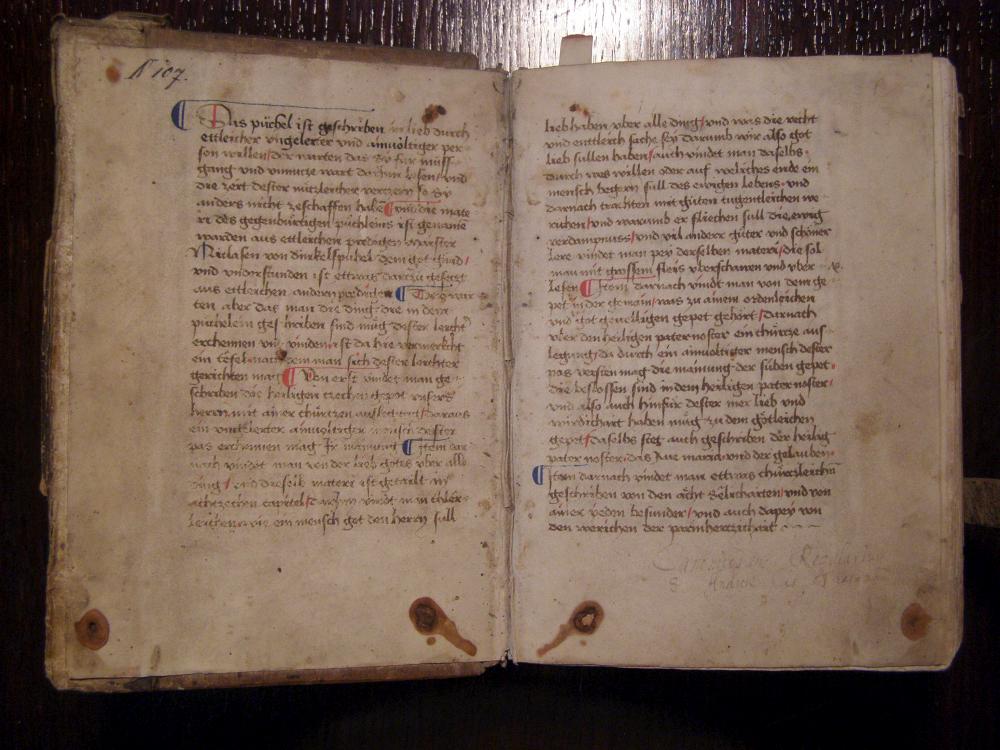 N 107.
Das püchel ist geschriben in lieb durch
ettleicher vngelerter vnd ainuoltiger per
son willen / der warten das Sy für müss
gang vnd vnnucz wart dar Inn lesen / vnd
die zeit dester nüczleicher verczern so Sy
anders nicht zeschaffen habe vnd die mate
ri des gegenbürtigen püchleins ist genome
warden aus ettleichen predigen Maister
Niclasen von dinkelspühel dem got gnad /
vnd vnderstunden ist ettwas darczu geseczt
aus ettleichen andern predigen
ten aber das man die ding die in dem
püchelein geschriben sind müg dester leicht
erchennen vnd vinden / ist da hie vermerkcht
ein tafel nach dem man sich dester leichter
gerichten mag Von erst vindet man ge
schriben die heiligen zechen gepot vnsers
herrn mit ainer churczen auslegung / daraus
ein ainuoltiger mensch dester
pas erchennen mag Ir mainung Item dar
nach vindet man von der lieb gotes vber alle
ding / vnd dieselb materi ist getailt in
achczechen capitel / darInn vindt man chler
leichen wie ein mensch got den herrn sull
lieb haben / vber alle ding / vnd was die recht
vnd enttleich sache sey darumb wir also got
lieb sullen haben / auch vindet man daselbs
durch wes willen oder auf weliches ende ein
mensch begern sull des ewigen lebens / vnd
darnach trachten mit guten tugentleichen we
richen / vnd warumb er fliechen sull die ewig
verdampnuss / vnd vil anderr guter vnd schoner
lere vindet man pey derselben materi / die sol
man mit grossem fleis vberschawen vnd vber
lesen Item darnach vindt man von dem ge
pet in der gemein / was zu ainem ordenleichen
vnd got geuelligen gepet gehört / darnach
vber den heiligen pater noster ein churcze aus
legung / da durch ein ainuoltiger mensch dester
pas versten mag die mainung der siben gepet
die beslossen sind in dem heiligen pater noster /
vnd also auch hinfür dester mer lieb vnd
wirdichait haben müg zu dem götleichen
gepet / daselbs stet auch geschriben der heilig
pater noster / das Aue maria vnd der gelauben
Item darnach vindet man ettwas churczleichn
geschriben von den acht Sälicharten / vnd von
ainer yeden besunder / vnd auch dapey von
den werichen der parmherczichait